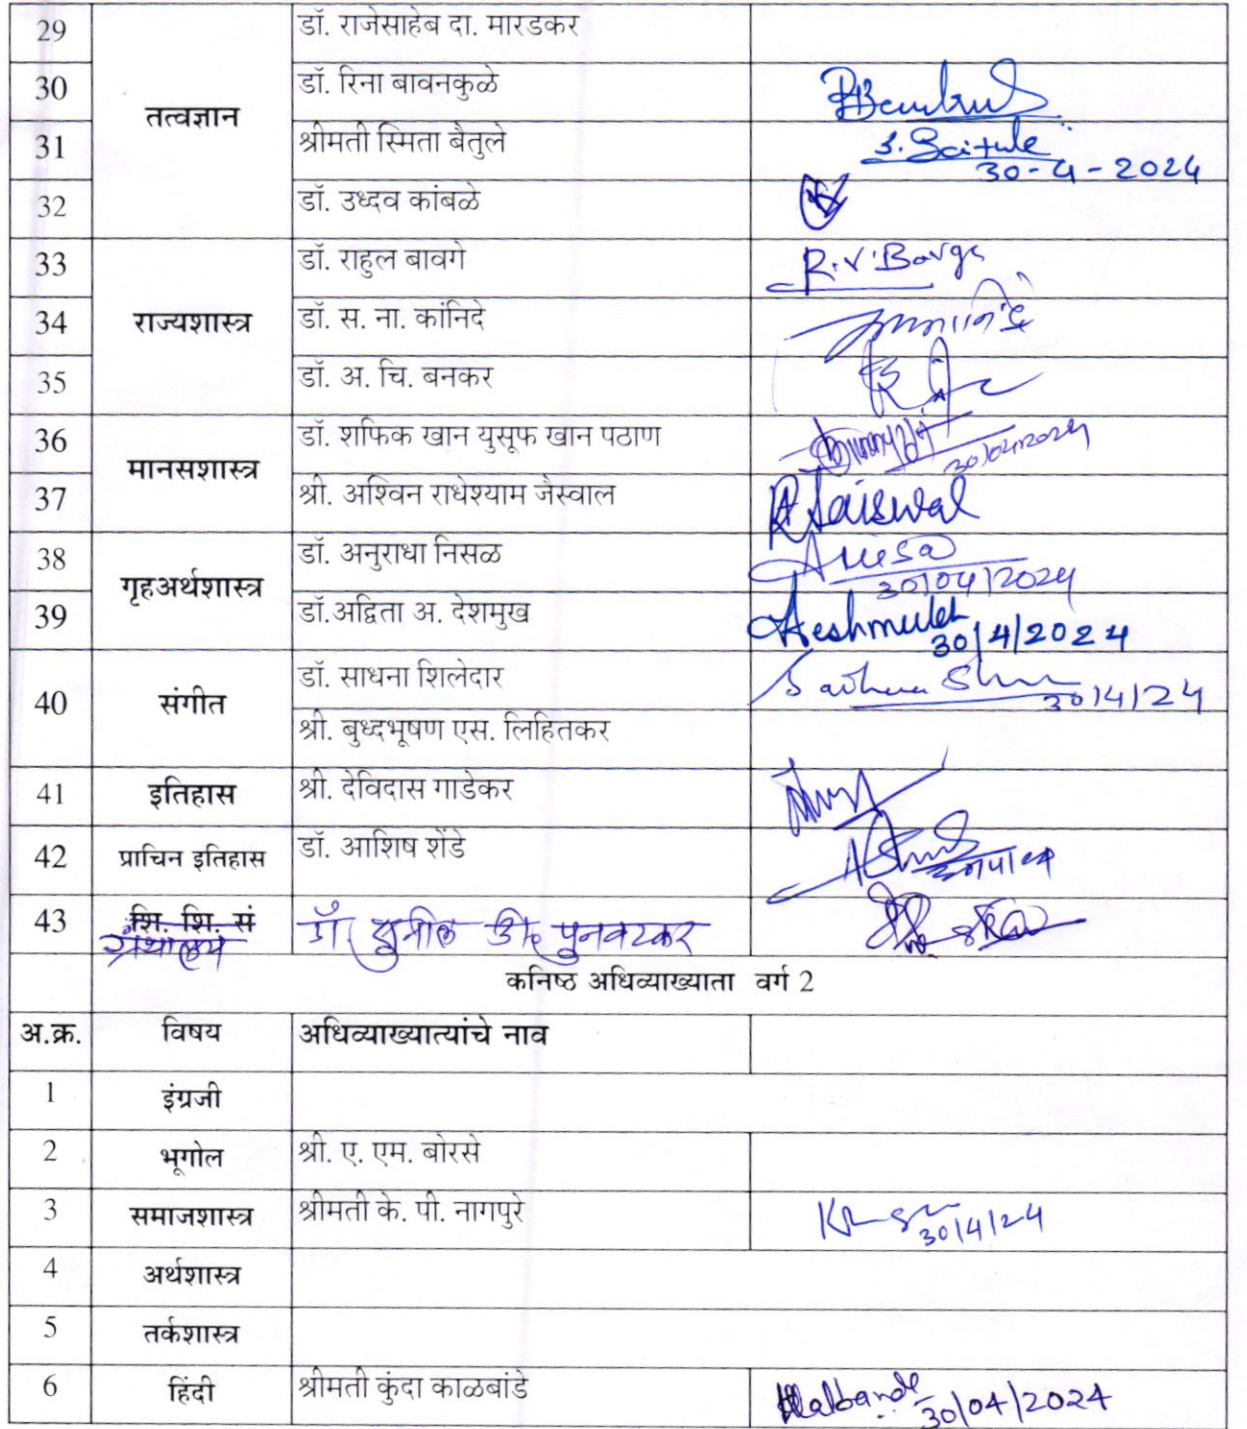 29 डॉ. राजेसाहेब दा. मारडकर
तत्वज्ञान
30 डॉ. रिना बावनकुळे
31 श्रीमती स्मिता बैतुले S. Baitule 30-4-2024
32 डॉ. उध्दव कांबळे
33 डॉ. राहुल बावगे R.V. Bavge
राज्यशास्त्र
34 डॉ. स. ना. कांनिदे
35 डॉ. अ. चि. बनकर
36 डॉ. शफिक खान युसूफ खान पठाण 30/04/2024
मानसशास्त्र
37 श्री. अश्विन राधेश्याम जैस्वाल Jaiswal
38 डॉ. अनुराधा निसळ 30/04/2024
गृहअर्थशास्त्र
39 डॉ.अद्विता अ. देशमुख Deshmukh 30/4/2024
40 संगीत डॉ. साधना शिलेदार 30/4/24
श्री. बुध्दभूषण एस. लिहितकर
41 इतिहास श्री. देविदास गाडेकर
42 प्राचिन इतिहास डॉ. आशिष शेंडे
43 शि. शि. सं
ग्रंथालय डॉ. सुनिल पुनवटकर
कनिष्ठ अधिव्याख्याता वर्ग 2
अ.क्र. विषय अधिव्याख्यात्यांचे नाव
1 इंग्रजी
2 भूगोल श्री. ए. एम. बोरसे
3 समाजशास्त्र श्रीमती के. पी. नागपुरे 30/4/24
4 अर्थशास्त्र
5 तर्कशास्त्र
6 हिंदी श्रीमती कुंदा काळबांडे Kalbande 30/04/2024